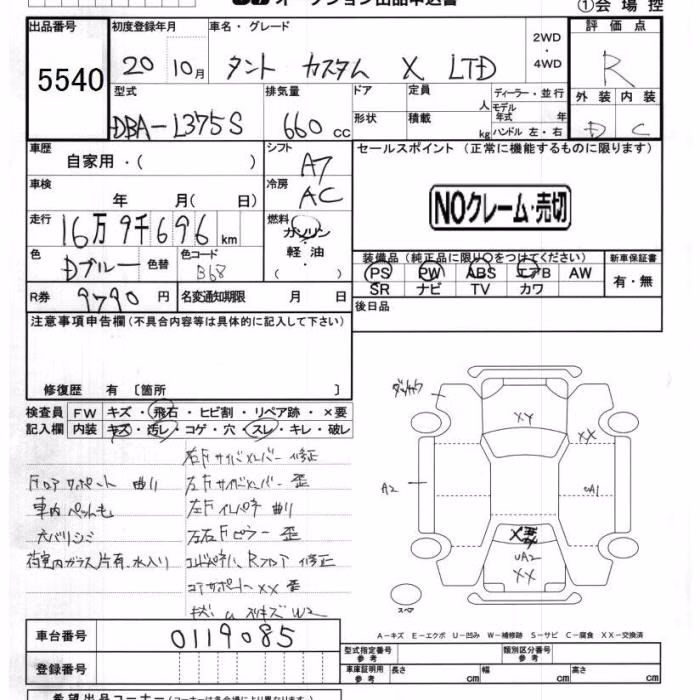 オークション出品申込書
①会場控
出品番号
5540
初度登録年月
20 10月
車名・グレード
タント カスタム X LTD
2WD
・
4WD
評価点
R
型式
DBA-L375S
排気量
660 cc
ドア
形状
定員 人
積載 kg
ディーラー・並行
モデル年式 年
ハンドル 左・右
外装 内装
D C
車歴
自家用・( )
シフト
A7
車検
年 月( 日)
冷房
AC
走行
16万9千696 km
燃料
ガソリン
軽油
( )
色
Dブルー
色替
色コード
B68
R券
9790 円
名変通知期限 月 日
セールスポイント (正常に機能するものに限ります)
NOクレーム・売切
装備品(純正品に限り○をつけてください)
PS PW ABS エアB AW
SR ナビ TV カワ
新車保証書
有・無
後日品
注意事項申告欄(不具合内容等は具体的に記入して下さい)
修復歴 有 〔箇所 〕
検査員
記入欄
FW キズ・飛石・ヒビ割・リペア跡・×要
内装 キズ・汚レ・コゲ・穴・スレ・キレ・破レ
右Fサイドメンバー 修正
Fコアサポート 曲り
左Fサイドメンバー 歪
車内ペットも
左Fインパネ 曲り
大バリシミ
左右Fピラー 歪
荷室内ガラス片有、水入り
Rフロア 修正
コアサポートXX 歪
A2
XY
XX
UA1
X要
UA2
XX
スペア
A-キズ E-エクボ U-凹み W-補修跡 S-サビ C-腐食 XX-交換済
車台番号
0119085
登録番号
型式指定番号
参考
類別区分番号
参考
車庫証明用
参考
長さ cm
幅 cm
高さ cm
希望出品コーナー(コーナーは各会場により異なります)